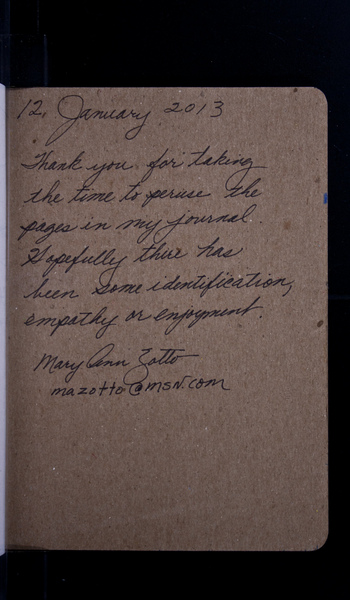 12, January 2013
Thank you for taking
the time to peruse the
pages in my journal.
Hopefully there has
been some identification,
empathy or enjoyment.
Mary Ann Zotto
mazotto@msn.com